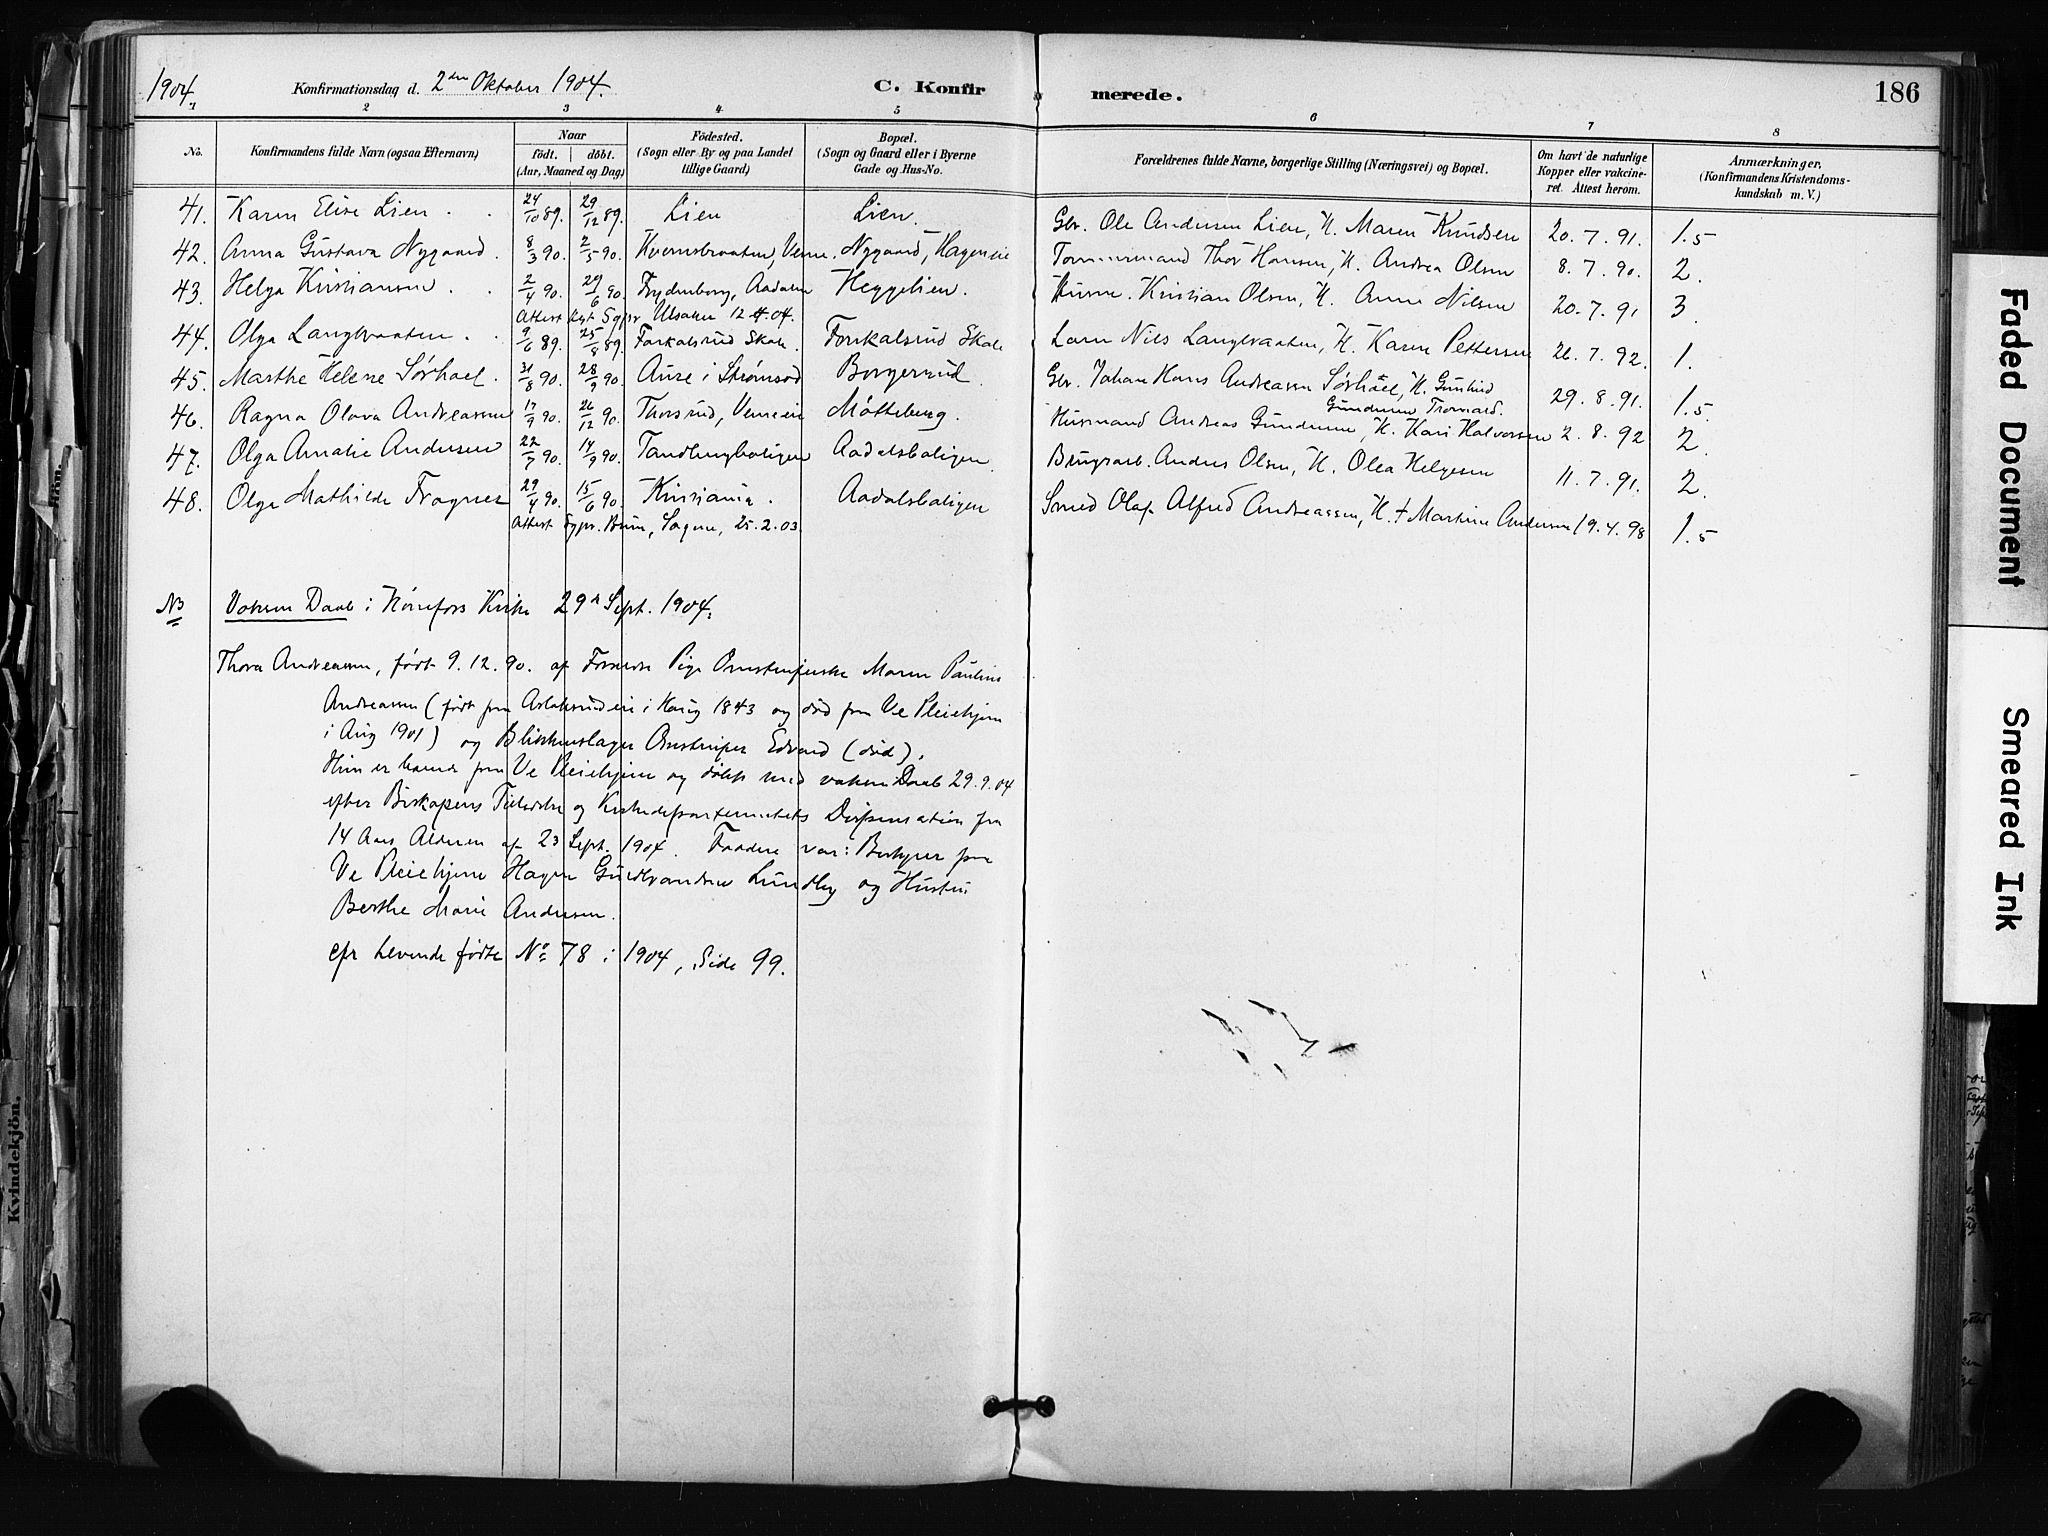 1904.
Konfirmationsdag d. 2den Oktober 1904.
C. Konfirmerede.
186
1 2 3 4 5 6 7 8
No.
Konfirmandens fulde Navn (ogsaa Efternavn)
Naar
födt. | döbt.
(Aar, Maaned og Dag)
Födested.
(Sogn eller By og paa Landet
tillige Gaard)
Bopæl.
(Sogn og Gaard eller i Byerne
Gade og Hus-No.
Forældrenes fulde Navne, borgerlige Stilling (Næringsvei) og Bopæl.
Om havt de naturlige
Kopper eller vakcine-
ret. Attest herom.
Anmærkninger.
(Konfirmandens Kristendoms-
kundskab m. V.)
41. Karen Elise Lien 24/10 89. 29/12 89. Lien Lien. Gbr. Ole Andersen Lien, H. Maren Knudsen 20.7.91. 1.5
42. Anna Gustava Nygaard. 8/3 90. 2/5 90. Kvernbraaten, Veme. Nygaard, Hageneie Tømmermand Thor Hansen, H. Andrea Olsen 8.7.90. 2.
43. Helga Kristiansen 2/4 90. 29/6 90. Frydenborg, Aadalen Heggelien. Husm. Kristian Olsen, H. Anne Nilsen 20.7.91 3.
Attest Sgpr. Ulsaker 12.4.04.
44. Olga Langbraaten 9/6 89. 25/8 89. Forkalsrud Skole. Forkalsrud Skole Lærer Nils Langbraaten, H. Karen Pettersen 26.7.92. 1.
45. Marthe Helene Sørhoel. 31/8 90. 28/9 90. Aure i Strømsod Borgerud. Gbr. Johan Hans Andreassen Sørhoel, H. Gunhild
Gundersen Tromald. 29.8.91. 1.5
46. Ragna Olava Andreassen 17/9 90. 26/12 90. Thorsrud, Vemeeie Møtteberg. Husmand Andreas Gundersen, H. Kari Halvorsen 2.8.92 2.
47. Olga Amalie Andersen 22/7 90. 14/9 90. Tandbergboligen Aadalsboligen. Brugsarb. Anders Olsen, H. Olea Helgesen 11.7.91. 2.
48. Olga Mathilde Fragner 29/4 90. 15/6 90. Kristiania. Aadalsboligen Smed Olaf Alfred Andreassen, H. † Martine Andersen 19.4.98 1.5
Attest Sgpr. Bruun, Sagene, 25.2.03.
NB Voksen Daab i Hønefoss Kirke 29de Sept. 1904.
Thora Andreassen, født 9.12.90. af Pige Omstreiferske Maren Pauline
Andreassen (født paa Aslaksrudeie i Haug 1843 og død paa Ve Pleiehjem
i Aug 1901) og Blikkenslager Omstreifer Edvard (død).
Hun er baaret paa Ve Pleiehjem og døbt med voksen Daab 29.9.04
efter Biskopens Tilladelse og Kirkedepartementets Dispensation fra
14 Aars Alderen af 23 Sept. 1904. Faddere var: Bestyrer paa
Ve Pleiehjem Hagen Gudbrandsen Lundby og Hustru
Berthe Marie Andersen.
cfr Levende fødte No 78 i 1904, Side 99.
Kvindekjön.
Faded Document
Smeared Ink